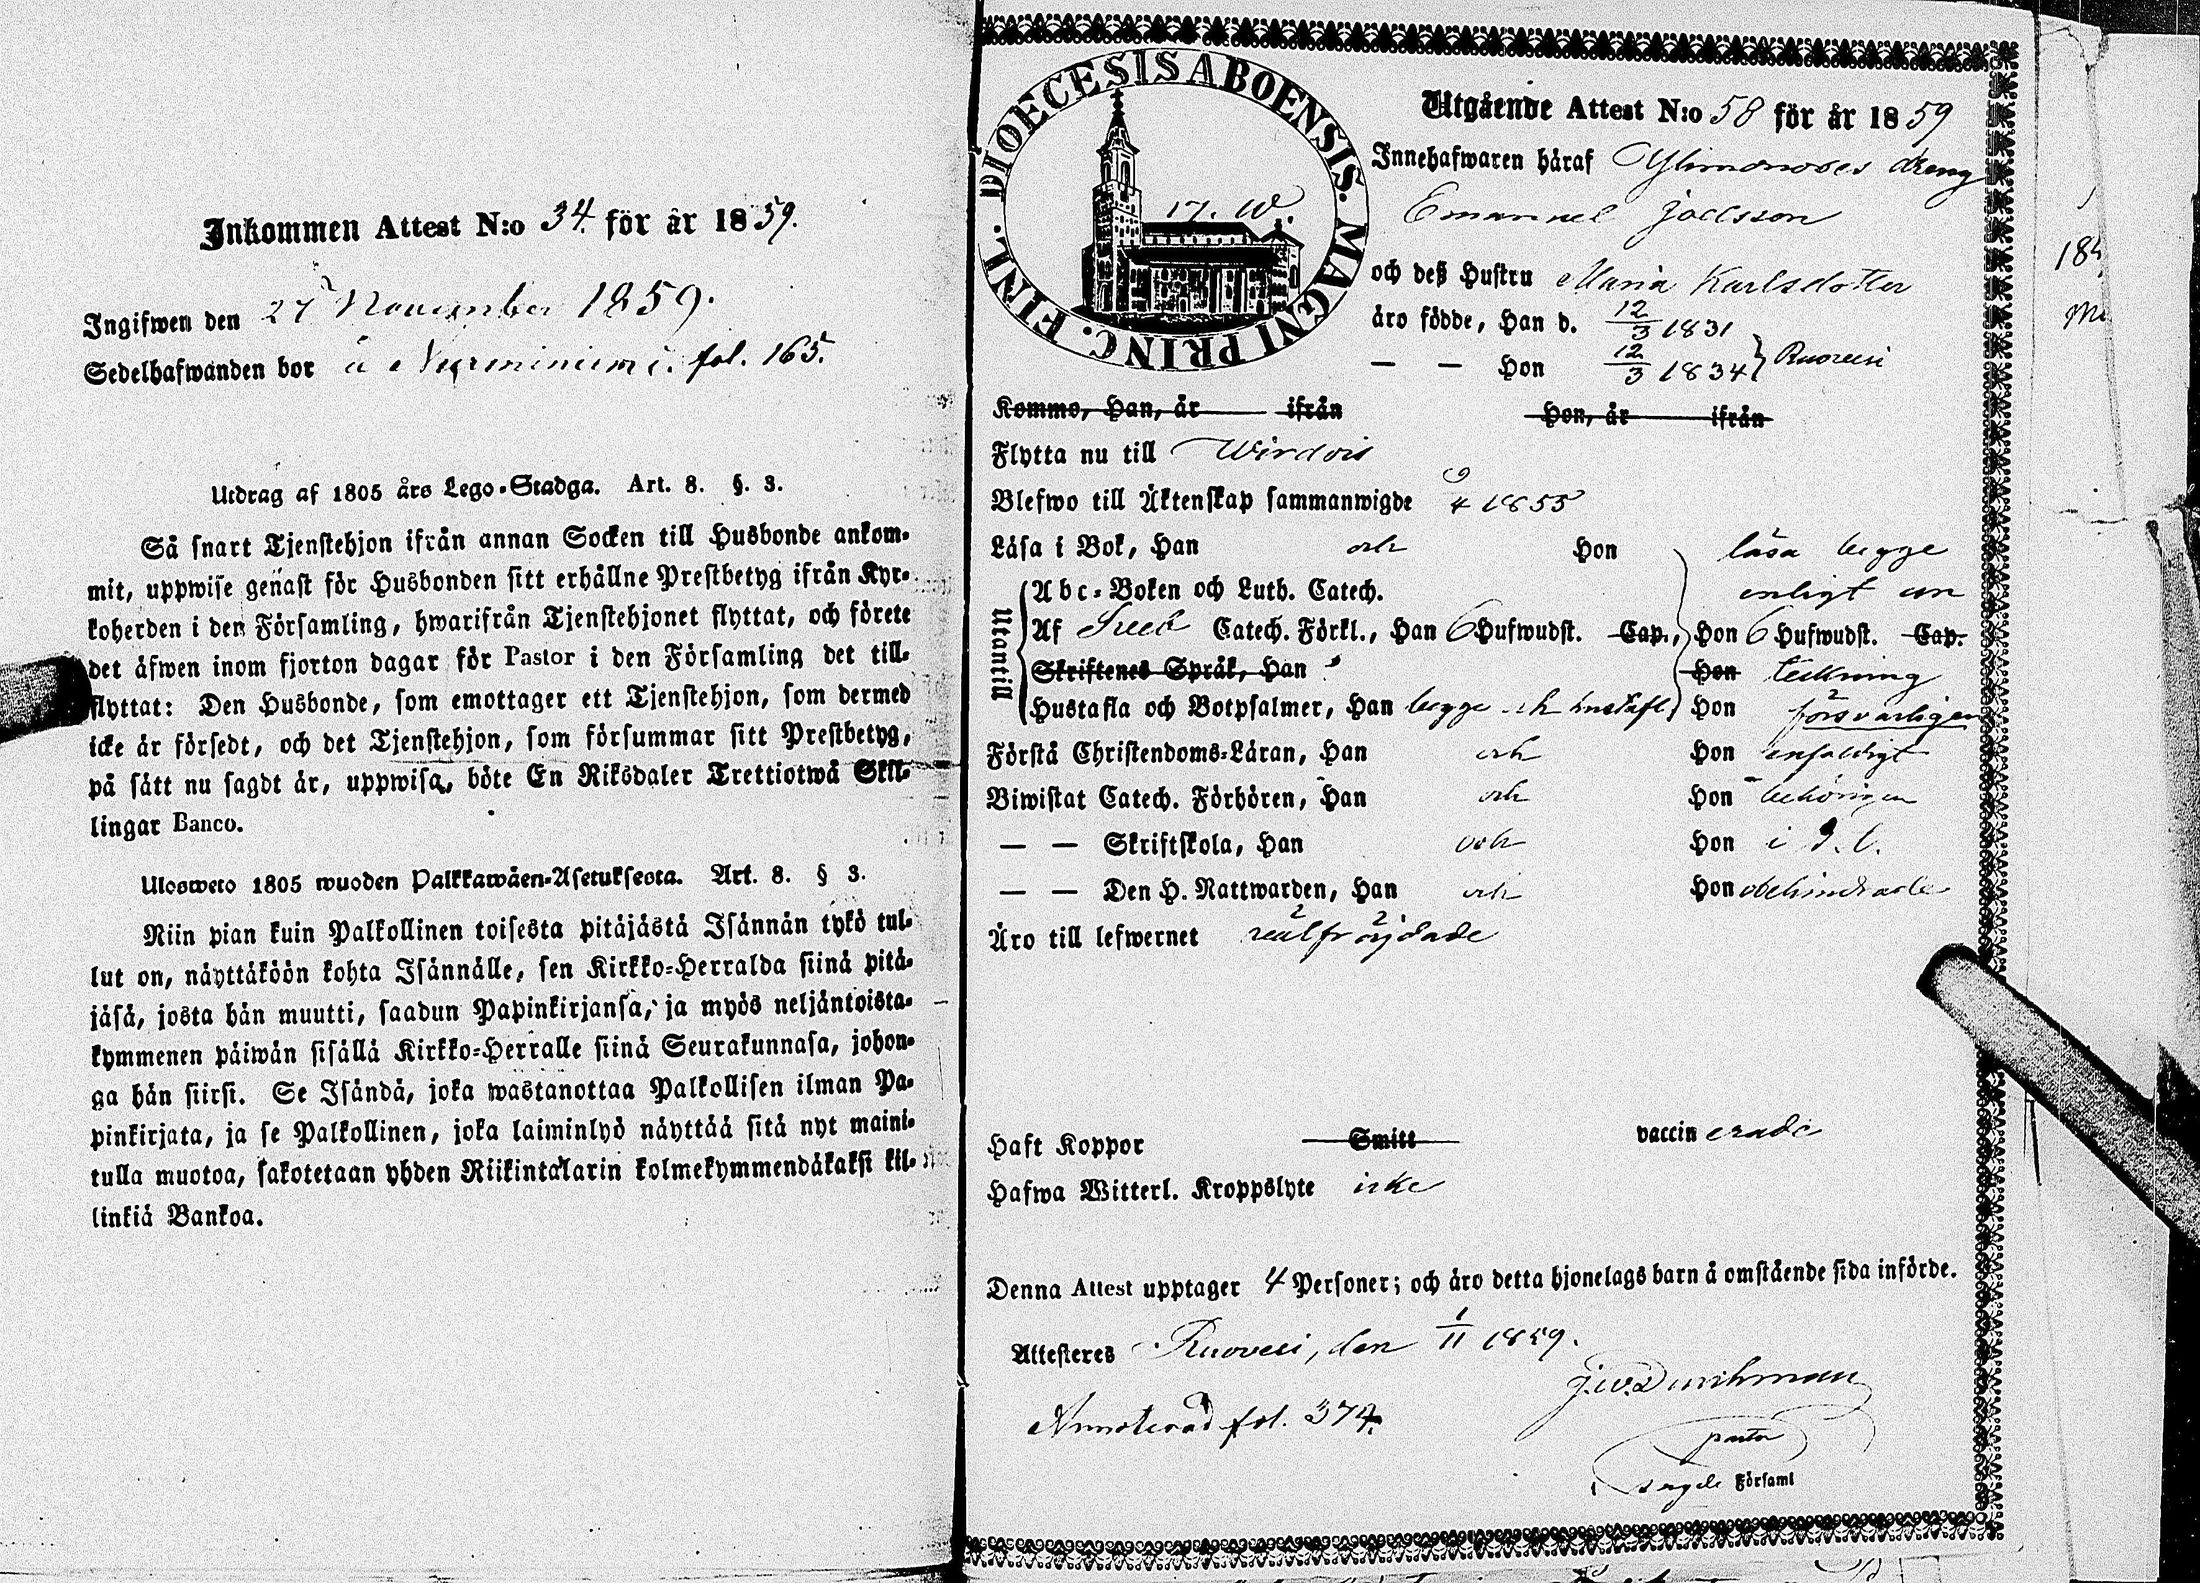 Inkommen Attest N:o 34. för år 1859.
Ingifwen den 27 November 1859.
Sedelhafwanden bor å Nurminiemi. fol. 165.
Utdrag af 1805 års Lego-Stadga. Art. 8. §. 3.
Så snart Tjenstehjon ifrån annan Socken till Husbonde ankom-
mit, uppwise genast för Husbonden sitt erhållne Prestbetyg ifrån Kyr-
koherden i den Församling, hwarifrån Tjenstehjonet flyttat, och förete
det äfwen inom fjorton dagar för Pastor i den Församling det till-
flyttat: Den Husbonde, som emottager ett Tjenstehjon, som dermed
icke är försedt, och det Tjenstehjon, som försummar sitt Prestbetyg,
på sätt nu sagdt är, uppwisa, böte En Riksdaler Trettiotwå Skil-
lingar Banco.
Ulosweto 1805 wuoden Palkkawäen-Asetuksesta. Art. 8. § 3.
Niin pian kuin Palkollinen toisesta pitäjästä Isännän tykö tul-
lut on, näyttäköön kohta Isännälle, sen Kirkko-Herralda siinä pitä-
jäsä, josta hän muutti, saadun Papinkirjansa, ja myös neljäntoista-
kymmenen päiwän sisällä Kirkko-Herralle siinä Seurakunnasa, johon-
ga hän siirsi. Se Isändä, joka wastanottaa Palkollisen ilman Pa-
pinkirjata, ja se Palkollinen, joka laiminlyö näyttää sitä nyt maini-
tulla muotoa, sakotetaan yhden Riikintalarin kolmekymmendäkaksi kil-
linkiä Bankoa.
DIOECESIS ABOENSIS. MAGNI PRINC. FINL.
17. W.
Utgående Attest N:o 58 för år 1859
Innehafwaren häraf Ylimonoses dreng
Emanuel Joelsson
och deß Hustru Maria Karlsdotter
äro födde, Han d. 12/3 1831
— — Hon 12/3 1834 } Ruovesi
Komme, Han, år ifrån Hon, år ifrån
Flytta nu till Wirdois
Blefwo till Äktenskap sammanwigde 9/4 1855
Läsa i Bok, Han och Hon läsa begge
Utantill
Abc-Boken och Luth. Catech. enligt an
Af Sveb Catech. Förkl., Han 6 Hufwudst. Cap., Hon 6 Hufwudst. Cap.
Skriftenes Språk, Han Hon teckning
Hustafla och Botpsalmer, Han begge och hustafl, Hon försvarligen
Förstå Christendoms-Läran, Han och Hon enfaldigt
Biwistat Catech. Förhören, Han och Hon behörigen
— — Skriftskola, Han och Hon i
— — Den H. Nattwarden, Han och Hon obehindrade
Äro till lefwernet välfräjdade
Haft Koppor Smitt vaccinerade
Hafwa Witterl. Kroppslyte icke
Denna Attest upptager 4 Personer; och äro detta hjonelags barn å omstående sida införde.
Attesteras Ruovesi, den 1/11 1859.
J.W. Durchman
pastor
Annoterad fol. 374.
Församl
184